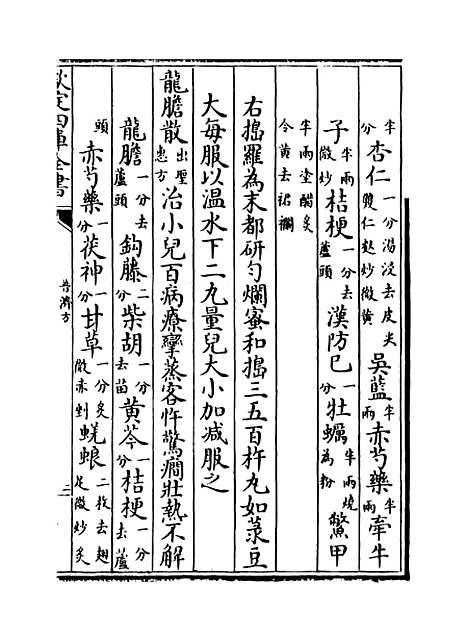 半分杏仁一分湯浸去皮尖雙仁麩炒微黄吳藍半兩赤芍藥半兩牽牛
子半兩微炒桔梗一分去蘆頭漢防己一分牡蠣半兩燒為粉鱉甲
半兩塗醋炙令黄去裙襴
右搗羅為末都研勻爛蜜和搗三五百杵丸如菉豆
大每服以温水下二丸量兒大小加减服之
龍膽散出聖惠方治小兒百病療攣蒸客忤驚癎壯熱不解
龍膽一分去蘆頭鈎藤二分柴胡一分去苗黄芩一分桔梗一分去蘆
頭赤芍藥一分茯神一分甘草一分炙微赤剉蜣蜋二枚去翅足微炒炙
欽定四庫全書
普濟方